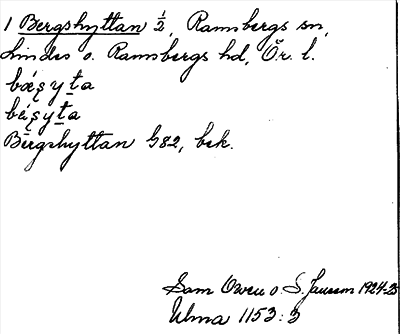 1 Bergshyttan ½, Ramsbergs sn,
Lindes o. Ramsbergs hd, Ör. l.
bæ̀ʂyt̠a
bɛ́ʂyt̠a
Bergshyttan G82, bsk.
Sam Owen o S. Janson 1924-25
Ulma 1153:3